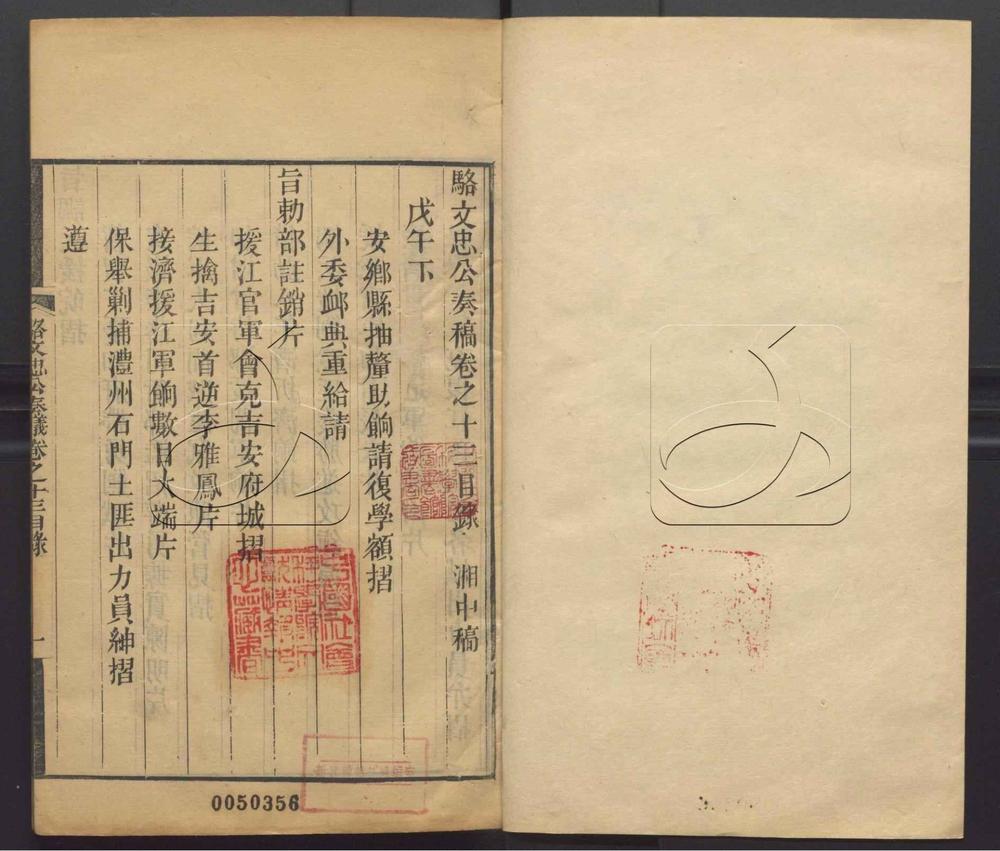 駱文忠公奏稿卷之十三目錄 湘中稿
戊午下
安鄉縣抽釐助餉請復學額摺
外委䘏典重給請
旨勅部註銷片
援江官軍會克吉安府城摺
生擒吉安首逆李雅鳳片
接濟援江軍餉數目大端片
保舉剿捕澧州石門土匪出力員紳摺
遵
駱文忠公奏議卷之十三目錄 一
0050356